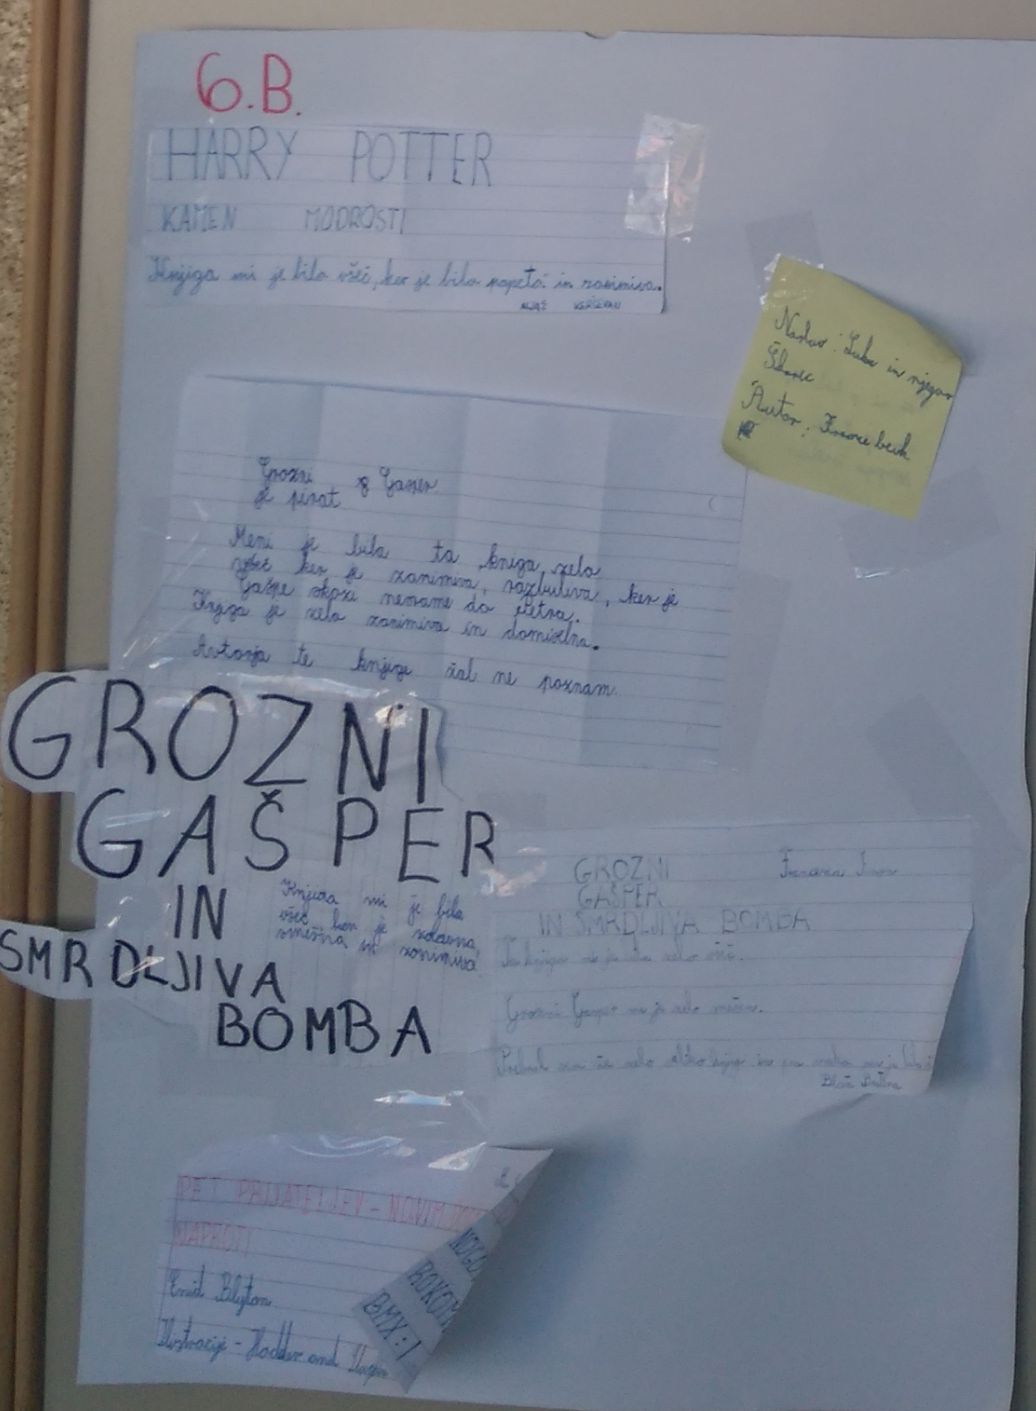 6.B.
HARRY POTTER
KAMEN MODROSTI
Knjiga mi je bila všeč, ker je bila napeta in zanimiva.
Naslov: Luka in njegov
Škorec
Avtor: France bevk
Grozni Gašper
je pirat
Meni je bila ta kniga zelo
všeč ker je zanimiva, razburljiva, ker je
Gašper
Knjiga je zelo zanimiva in domiselna.
Avtorja te knjige žal ne poznam.
GROZNI
GAŠPER
IN
SMRDLJIVA
BOMBA
Knjiga mi je bila
všeč ker je zabavna,
smešna in zanimiva
GROZNI
GAŠPER
IN SMRDLJIVA BOMBA
Francesca Simon
Ta knjiga mi je bila zelo všeč.
Grozni Gašper mi je zelo
PET PRIJATELJEV - NOVIM
NAPROTI
Enid Blyton
Ilustracije - Hodder and
NOGO
ROKOM
BMX:1